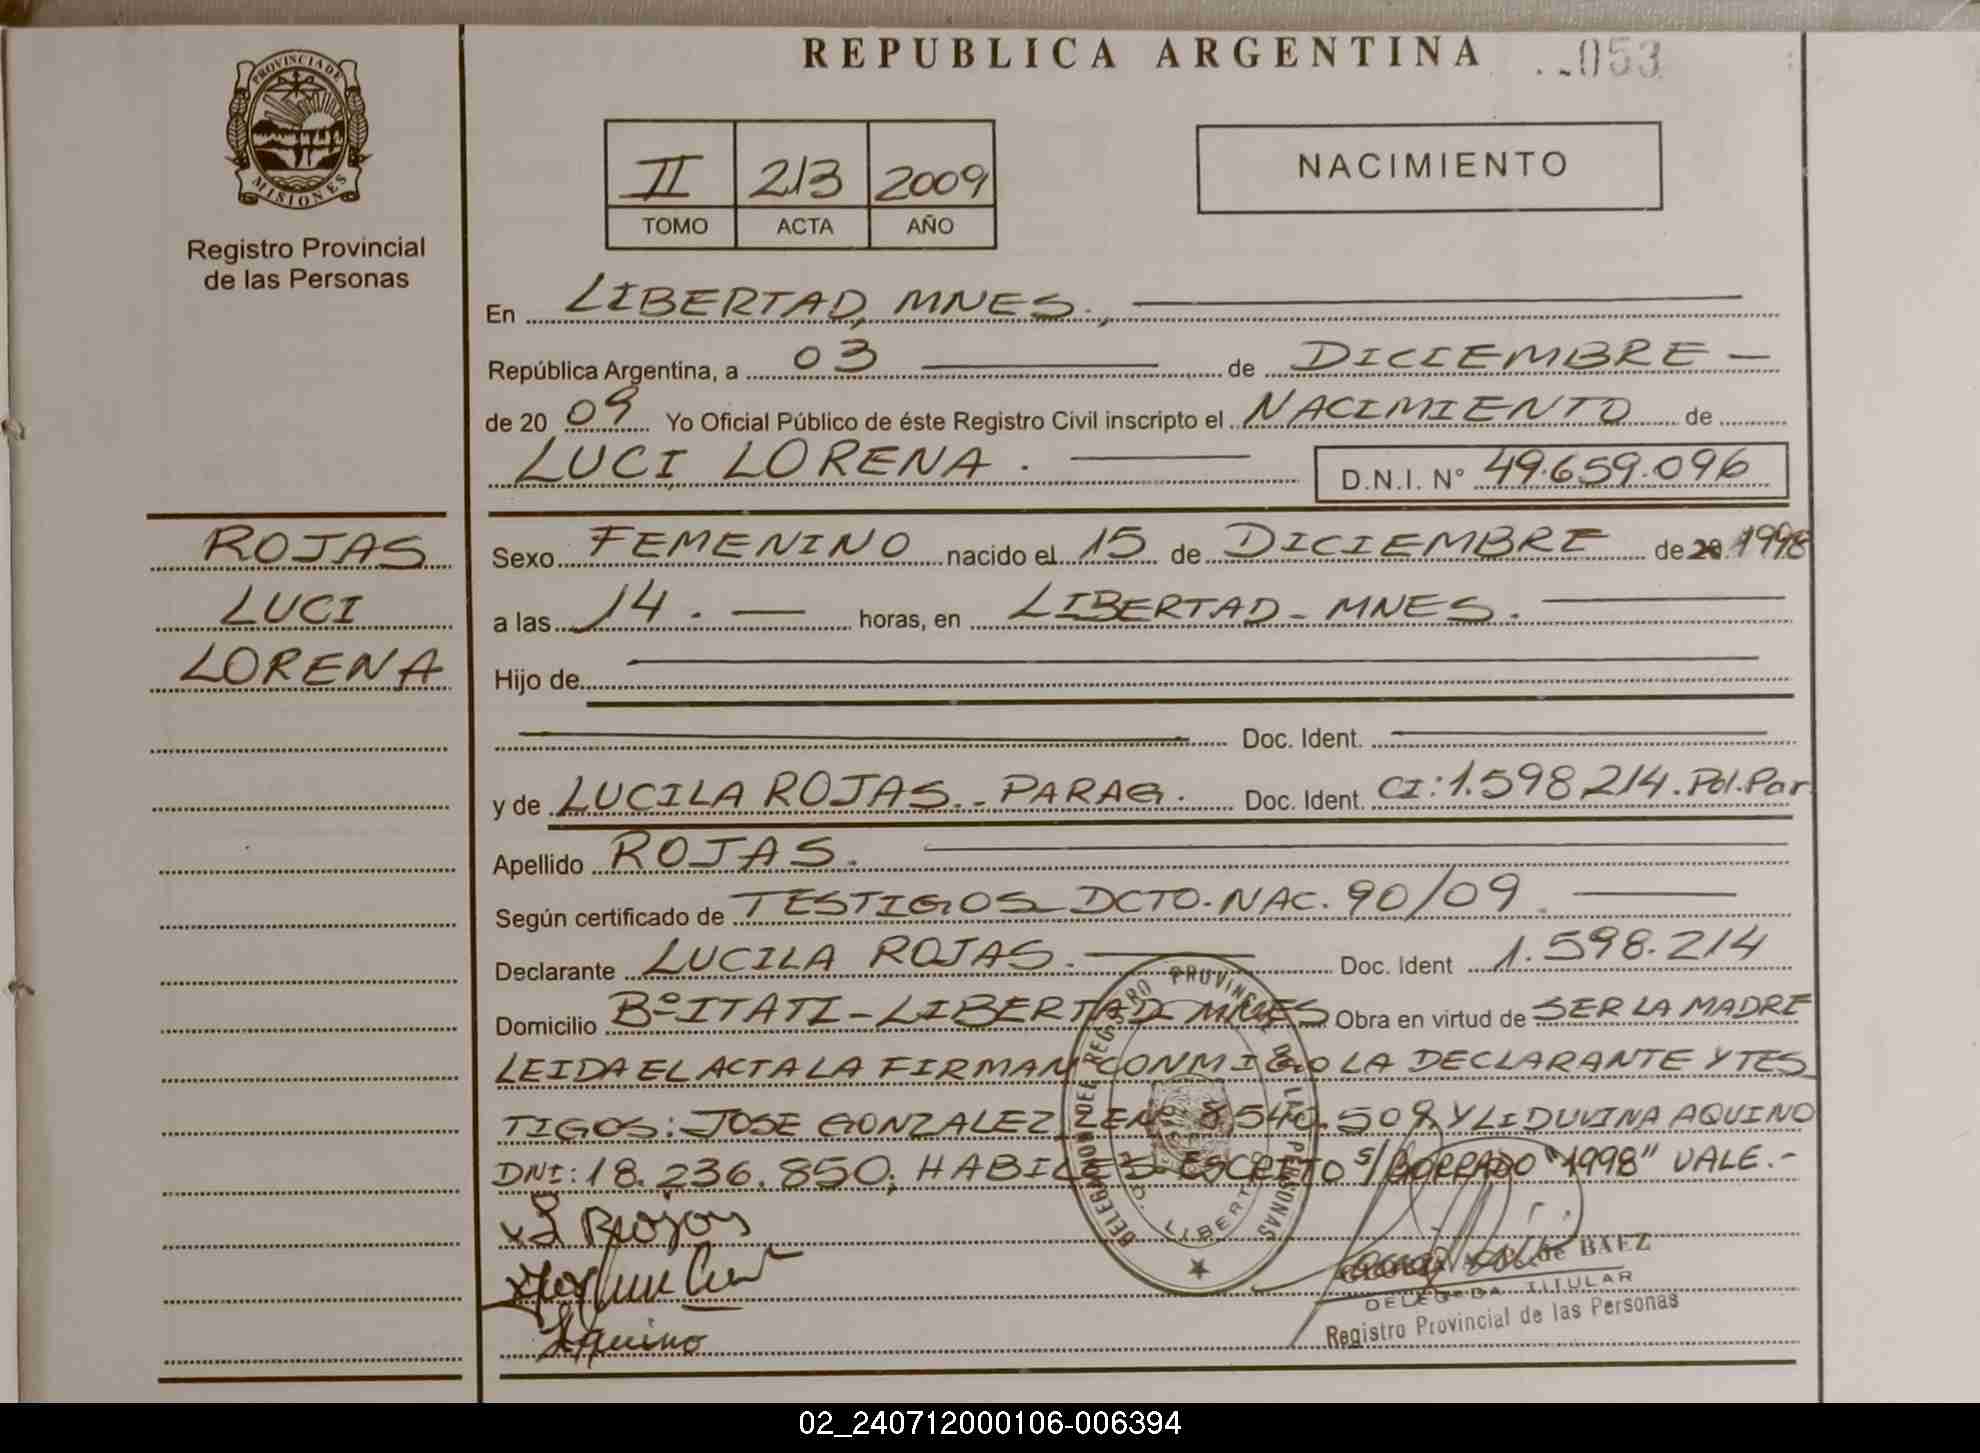 REPUBLICA ARGENTINA
053
PROVINCIA DE
MISIONES
Registro Provincial
de las Personas
II 213 2009
TOMO ACTA AÑO
NACIMIENTO
En LIBERTAD, MNES.,
República Argentina, a 03 de DICIEMBRE
de 20 09 Yo Oficial Público de éste Registro Civil inscripto el NACIMIENTO de
LUCI LORENA. D.N.I. N° 49.659.096
ROJAS
LUCI
LORENA
Sexo FEMENINO nacido el 15 de DICIEMBRE de 20 1998
a las 14. horas, en LIBERTAD - MNES.
Hijo de
Doc. Ident.
y de LUCILA ROJAS.- PARAG. Doc. Ident. CI: 1.598.214. Pol. Par.
Apellido ROJAS.
Según certificado de TESTIGOS DCTO. NAC. 90/09.
Declarante LUCILA ROJAS. Doc. Ident 1.598.214
Domicilio Bº ITATI - LIBERTAD MNES Obra en virtud de SER LA MADRE
LEIDA EL ACTA LA FIRMAN CONMIGO LA DECLARANTE Y TES
TIGOS: JOSE GONZALEZ, 8.540.509 Y LIDUVINA AQUINO
DNI: 18.236.850; HABILES ESCRITO S/BORRADO "1998" VALE.-
DELEGACION DEL REGISTRO PROVINCIAL DE LAS PERSONAS
LIBERTAD
L Rojas
Aquino
de BAEZ
DELEGADA TITULAR
Registro Provincial de las Personas
02_240712000106-006394